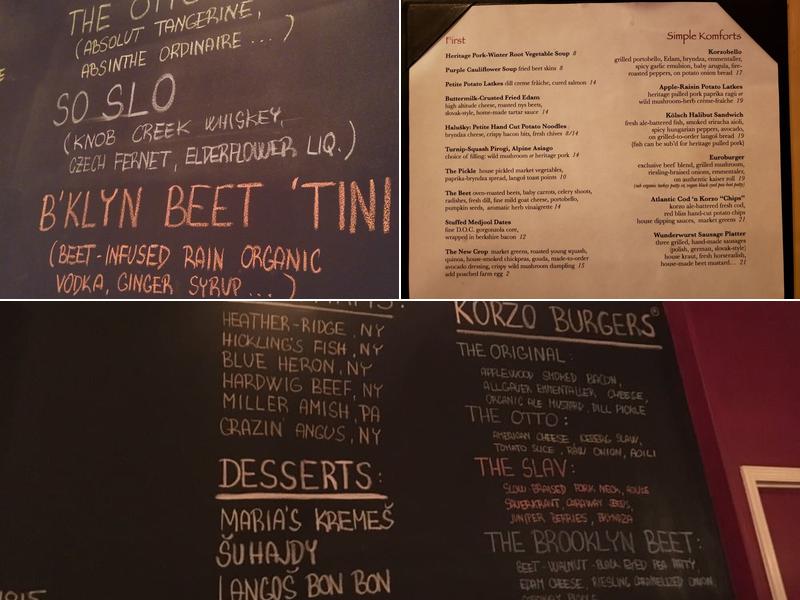 THE OTTO
(ABSOLUT TANGERINE,
ABSINTHE ORDINAIRE ... )
SO SLO
(KNOB CREEK WHISKEY,
CZECH FERNET, ELDERFLOWER LIQ.)
B'KLYN BEET 'TINI
(BEET-INFUSED RAIN ORGANIC
VODKA, GINGER SYRUP ... )
First
Heritage Pork-Winter Root Vegetable Soup 8
Purple Cauliflower Soup fried beet skins 8
Petite Potato Latkes dill crème fraîche, cured salmon 14
Buttermilk-Crusted Fried Edam
high altitude cheese, roasted nys beets,
slovak-style, home-made tartar sauce 14
Halušky: Petite Hand Cut Potato Noodles
bryndza cheese, crispy bacon bits, fresh chives 8/14
Turnip-Squash Pirogi, Alpine Asiago
choice of filling: wild mushroom or heritage pork 14
The Pickle house pickled market vegetables,
paprika-bryndza spread, langoš toast points 10
The Beet oven-roasted beets, baby carrots, celery shoots,
radishes, fresh dill, fine mild goat cheese, portobello,
pumpkin seeds, aromatic herb vinaigrette 14
Stuffed Medjool Dates
fine D.O.C. gorgonzola core,
wrapped in berkshire bacon 12
The New Crop market greens, roasted young squash,
quinoa, house-smoked chickpeas, gouda, made-to-order
avocado dressing, crispy wild mushroom dumpling 15
add poached farm egg 2
Simple Komforts
Korzobello
grilled portobello, Edam, bryndza, emmentaler,
spicy garlic emulsion, baby arugula, fire-
roasted peppers, on potato onion bread 17
Apple-Raisin Potato Latkes
heritage pulled pork paprika ragú or
wild mushroom-herb crème-fraîche 19
Kölsch Halibut Sandwich
fresh ale-battered fish, smoked sriracha aioli,
spicy hungarian peppers, avocado,
on grilled-to-order langoš bread 19
(fish can be sub'd for heritage pulled pork)
Euroburger
exclusive beef blend, grilled mushroom,
riesling-braised onions, emmentaler,
on authentic kaiser roll 19
Atlantic Cod 'n Korzo "Chips"
korzo ale-battered fresh cod,
red bliss hand-cut potato chips
house dipping sauces, market greens 21
Wunderwurst Sausage Platter
three grilled, hand-made sausages
(polish, german, slovak-style)
house kraut, fresh horseradish,
house-made beet mustard... 21
HEATHER-RIDGE, NY
HICKLING'S FISH, NY
BLUE HERON, NY
HARDWIG BEEF, NY
MILLER AMISH, PA
GRAZIN' ANGUS, NY
DESSERTS:
MARIA'S KREMEŠ
ŠUHAJDY
LANGOŠ BON BON
KORZO BURGERS®
THE ORIGINAL:
APPLEWOOD SMOKED BACON,
ALLGAUER EMMENTALLER CHEESE,
ORGANIC ALE MUSTARD, DILL PICKLE
THE OTTO:
AMERICAN CHEESE, ICEBERG SLAW,
TOMATO SLICE, RAW ONION, AOILI
THE SLAV:
SLOW BRAISED PORK NECK, HOUSE
SAUERKRAUT, CARAWAY SEEDS,
JUNIPER BERRIES, BRYNDZA
THE BROOKLYN BEET:
BEET-WALNUT-BLACK EYED PEA PATTY,
EDAM CHEESE, RIESLING CARAMELIZED ONION,